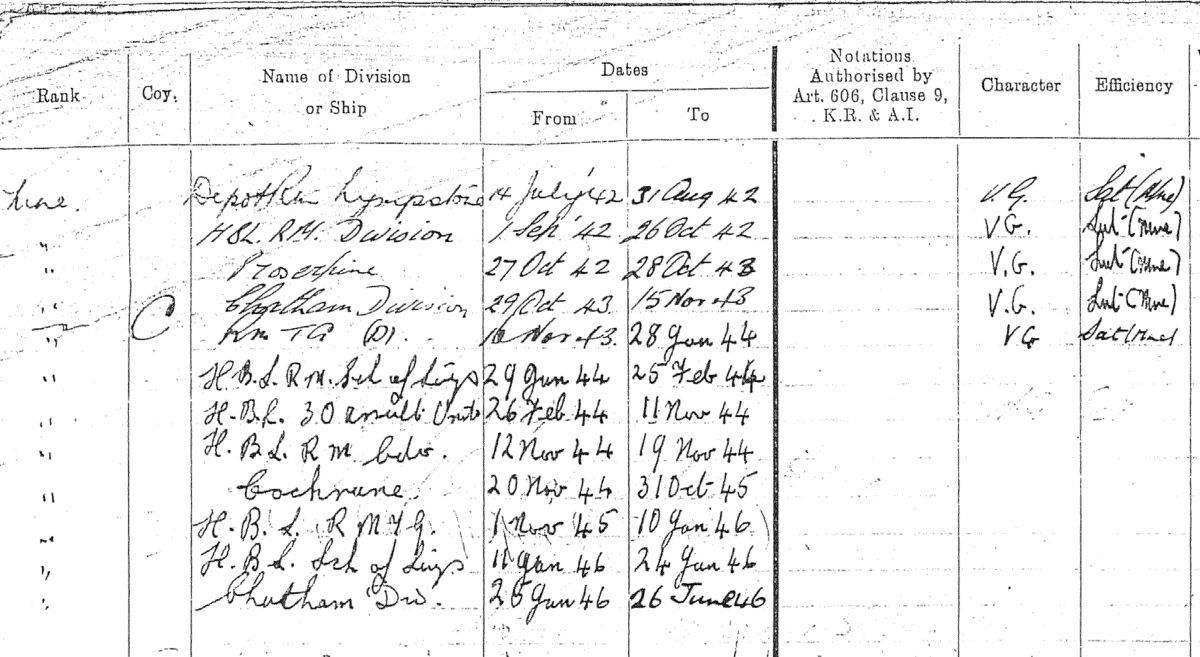 Rank. Coy. Name of Division or Ship Dates From To Notations Authorised by Art. 606, Clause 9, K.R. & A.I. Character Efficiency
Depot R.M. Lympstone 14 July '42 31 Aug 42 V.G. Sat (Mne)
" H.B.L. R.M. Division 1 Sep 42 26 Oct 42 VG. Sat (Mne)
" Proserpine 27 Oct 42 28 Oct 43 V.G. Sat (Mne)
" Chatham Division 29 Oct 43 15 Nov 43 V.G. Sat (Mne)
" C Rm TG (D). 16 Nov 43. 28 Jan 44 VG Sat (Mne)
" H.B.L. R.M. Sch of Sigs 29 Jan 44 25 Feb 44
" H.B.L. 30 Unit 26 Feb 44 11 Nov 44
" H.B.L. R M Cdo. 12 Nov 44 19 Nov 44
" Cochrane. 20 Nov 44 31 Oct 45
" H.B.L. R M 1 Nov 45 10 Jan 46
" H.B.L. Sch of Sigs 11 Jan 46 24 Jan 46
" Chatham Div. 25 Jan 46 26 June 46